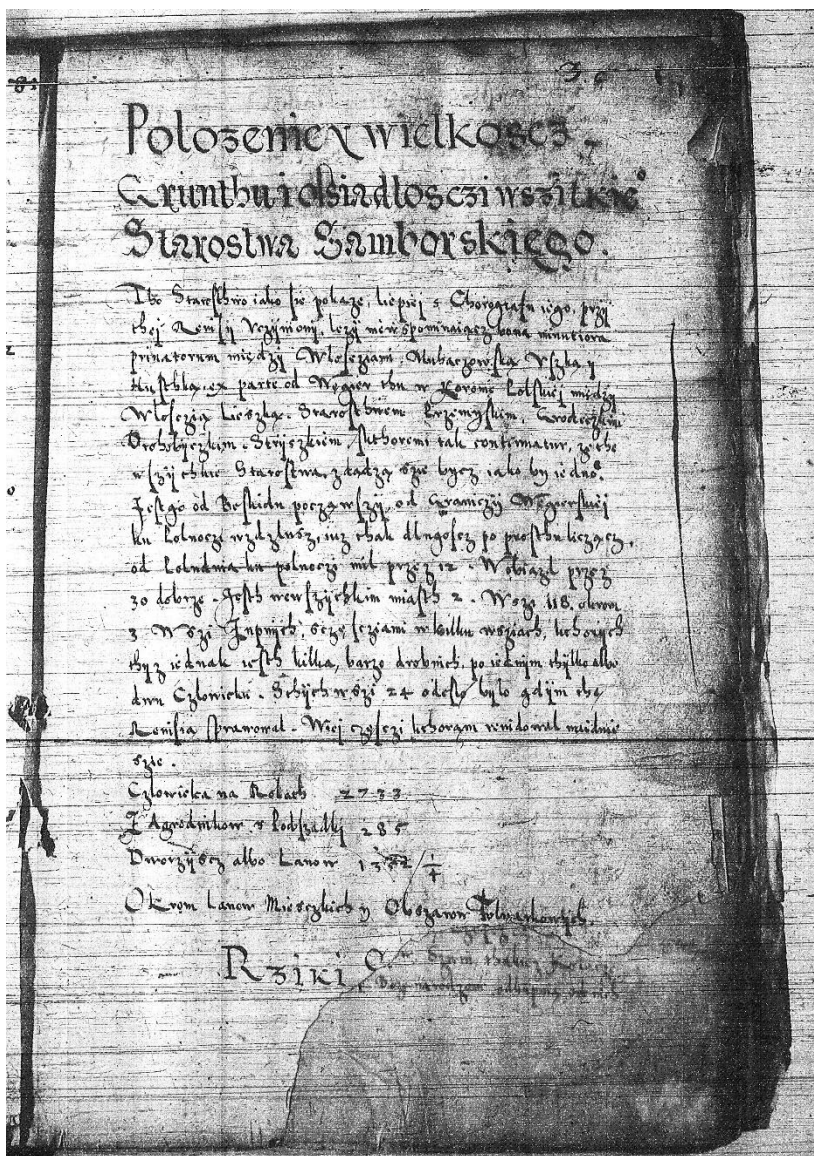 Polozenie y wielkoscz
Grunthu i osiadlosczi wszitkieo
Starostwa Samborskiego.
Tho Starosthwo iako sie pokaze, liepiej s Chorografii iego, przy
thej Rewisij Uczynionj, lezy niewspominaiącz bona minutiora
priuatorum między Wlosciami, Muhaczowską Uszką y
Husthką, ex parte od Węgier thu w Koronie Polskiej między
Wlosczią Lieszką. Starosthwem Przemyskim, Grodeczkim
Drohobyczkim. Stryszkiem, skthoremi tak continuatur, ze the
wszystkie Starostwa, zdadzą szie bycz iako by iedno.
Jest go od Beskidu począwszy, od Graniczy Węgierskiej
ku Polnoczi wzdzlusz, wz thak dlugoscz po prosthu licząc,
od Poludnia ku polnoczi mil przez 12. W obiazd przez
30 dobrze. Jesth wewszythkim miasth 2. Wszi 118. okrom
3 Wszi Zupnich, sczęsciami w kilku wsziach, kthorych
thyz iednak iesth kilka, barzo drobnich, po iednym thylko albo
dwu Czlowieku. Sthych wszi 24 odeszlo bylo gdym thę
Rewisią sprawowal. Wiej częsczi kthorąm rewidowal naidnie
szie.
Czlowieka na Rolach 2733
Zagrodnikow s Podszadkj 285
Dworzyscz albo Lanow 13 1/4
Okrom Lanow Mieszkich y Obszarow Folwarkowych.
Rziki